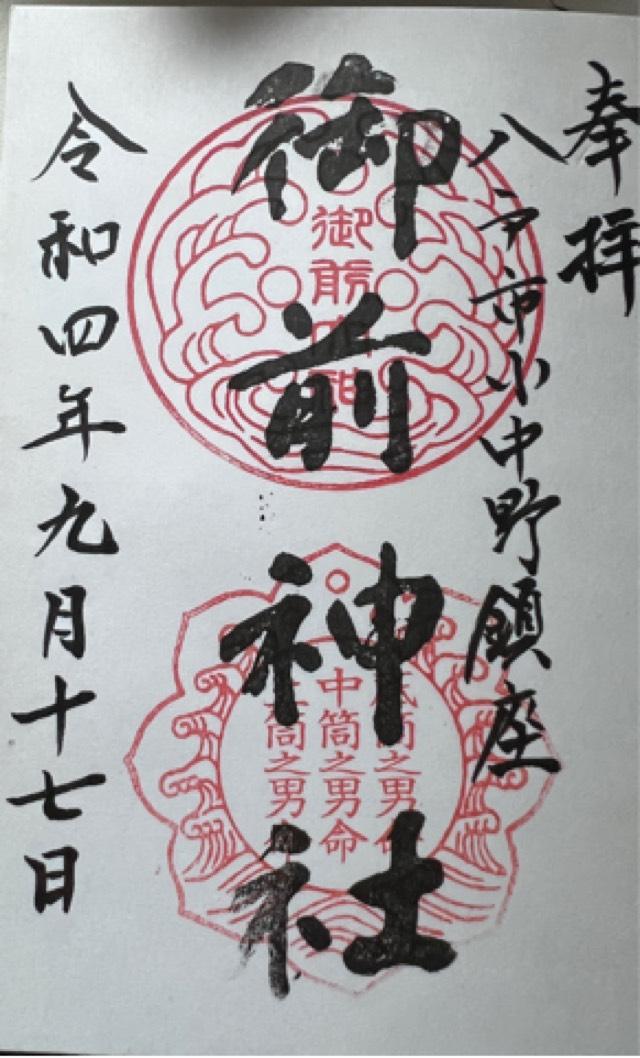 奉拝
八戸市小中野鎮座
御前神社
御前神社
底筒之男命
中筒之男命
上筒之男命
令和四年九月十七日